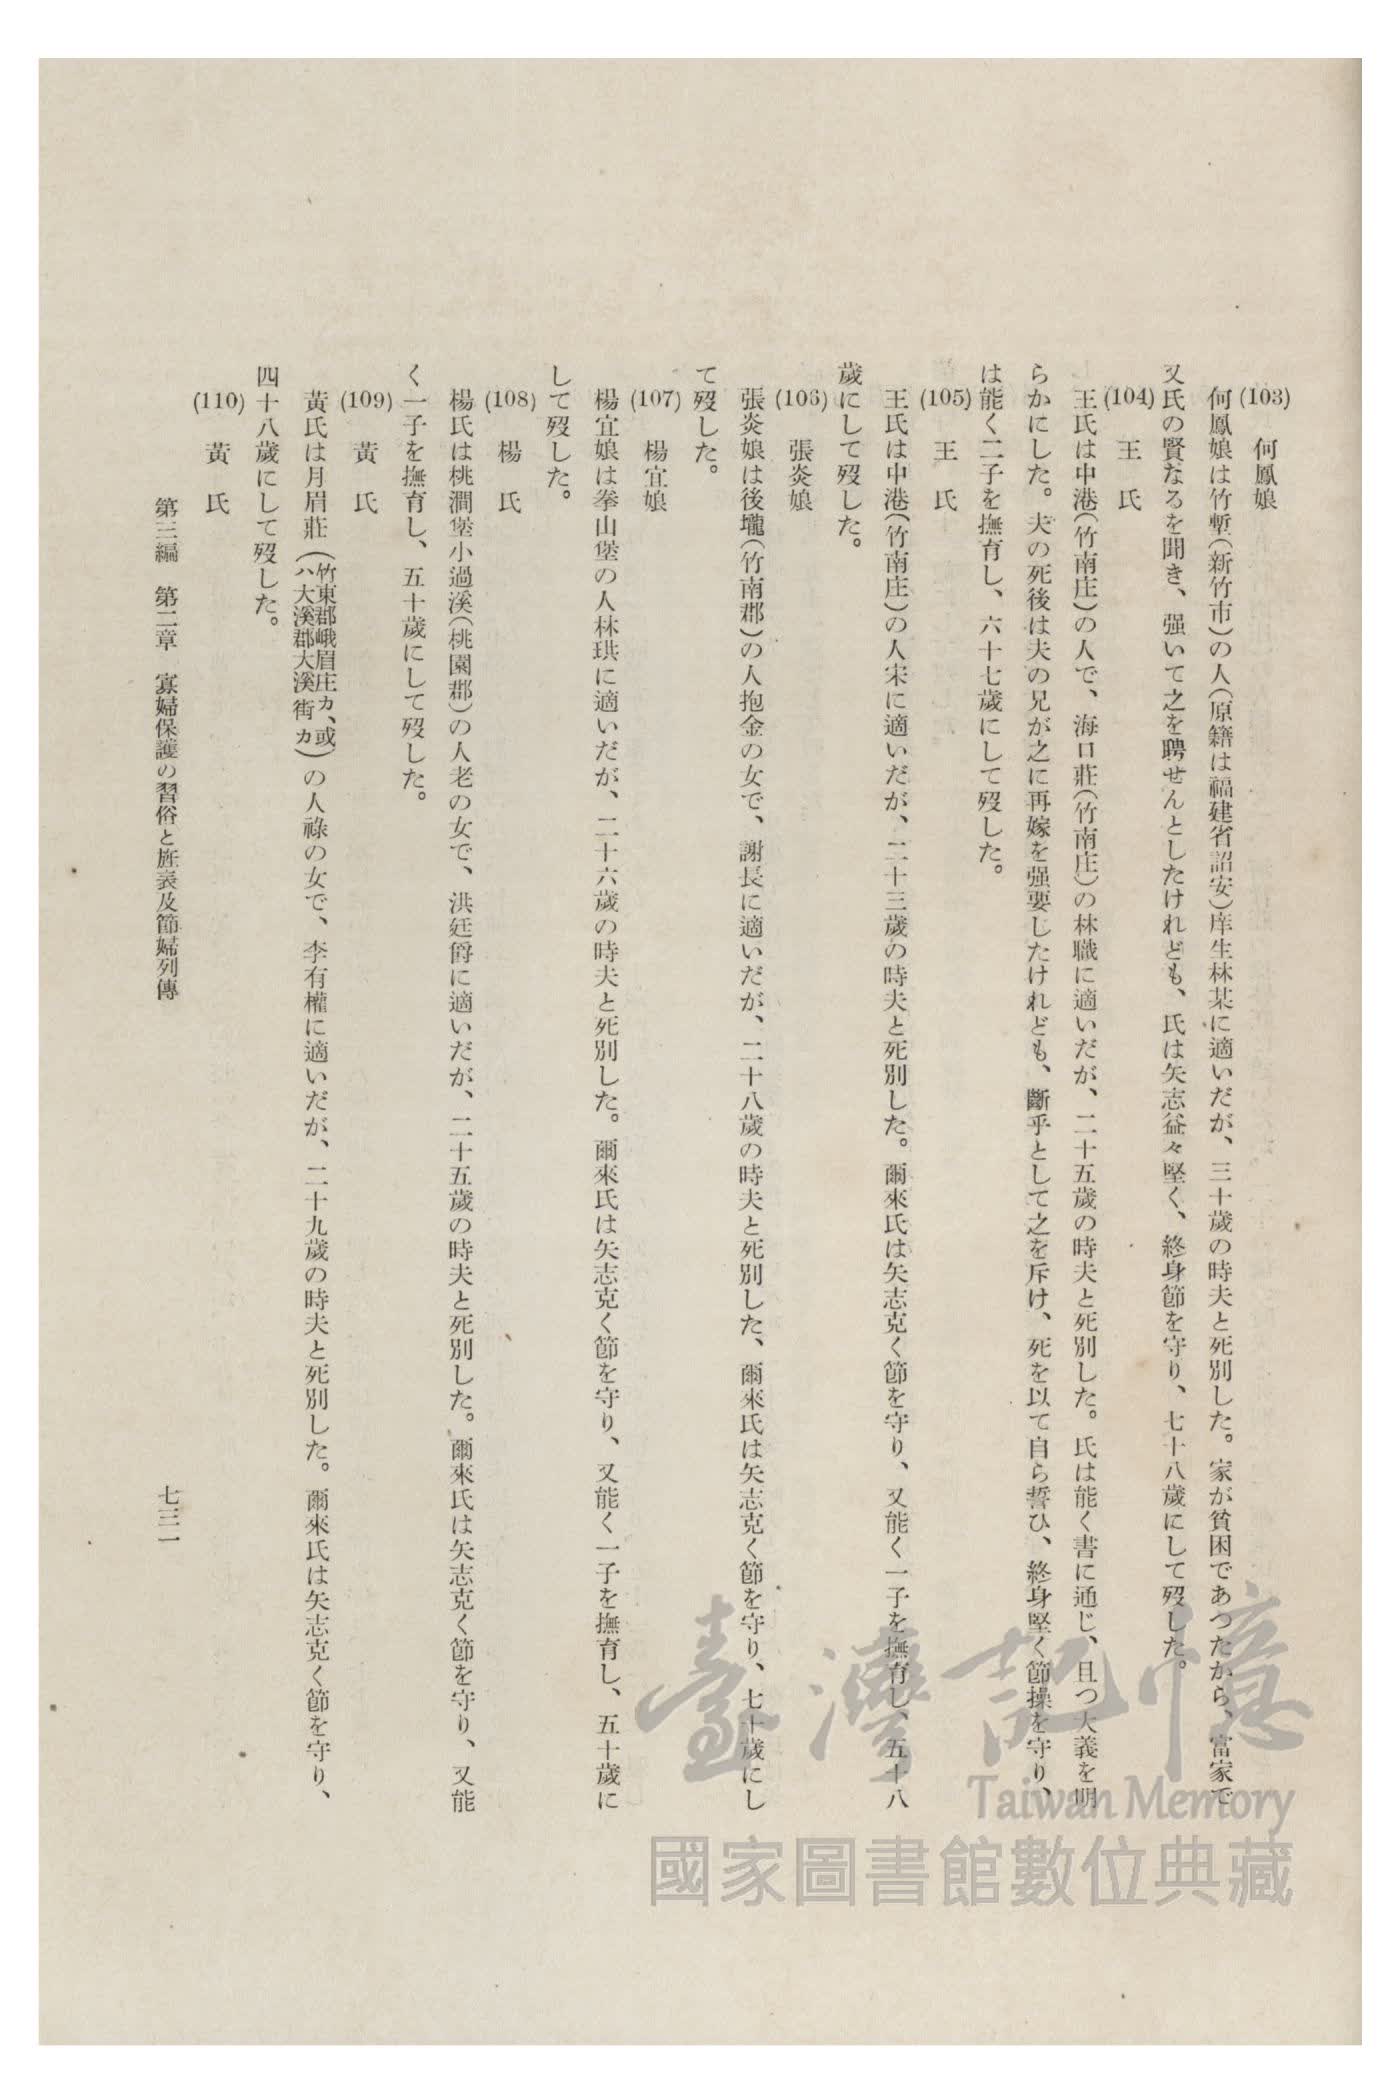 (103) 何鳳娘
何鳳娘は竹塹(新竹市)の人(原籍は福建省詔安)庠生林某に適いだが、三十歲の時夫と死別した。家が貧困であつたから、富家で
又氏の賢なるを聞き、强いて之を聘せんとしたけれども、氏は矢志益々堅く、終身節を守り、七十八歲にして歿した。
(104) 王氏
王氏は中港(竹南庄)の人で、海口莊(竹南庄)の林職に適いだが、二十五歲の時夫と死別した。氏は能く書に通じ、且つ大義を明
らかにした。夫の死後は夫の兄が之に再嫁を强要したけれども、斷乎として之を斥け、死を以て自ら誓ひ、終身堅く節操を守り、
は能く二子を撫育し、六十七歲にして歿した。
(105) 王氏
王氏は中港(竹南庄)の人宋に適いだが、二十三歲の時夫と死別した。爾來氏は矢志克く節を守り、又能く一子を撫育し、五十八
歲にして歿した。
(106) 張炎娘
張炎娘は後壠(竹南郡)の人抱金の女で、謝長に適いだが、二十八歲の時夫と死別した、爾來氏は矢志克く節を守り、七十歲にし
て歿した。
(107) 楊宜娘
楊宜娘は拳山堡の人林珙に適いだが、二十六歲の時夫と死別した。爾來氏は矢志克く節を守り、又能く一子を撫育し、五十歲に
して歿した。
(108) 楊氏
楊氏は桃澗堡小過溪(桃園郡)の人老の女で、洪廷爵に適いだが、二十五歲の時夫と死別した。爾來氏は矢志克く節を守り、又能
く一子を撫育し、五十歲にして歿した。
(109) 黃氏
黃氏は月眉莊(竹東郡峨眉庄カ、或ハ大溪郡大溪街カ)の人祿の女で、李有權に適いだが、二十九歲の時夫と死別した。爾來氏は矢志克く節を守り、
四十八歲にして歿した。
(110) 黃氏
第三編 第二章 寡婦保護の習俗と旌表及節婦列傳
七三一
臺灣記憶
Taiwan Memory
國家圖書館數位典藏